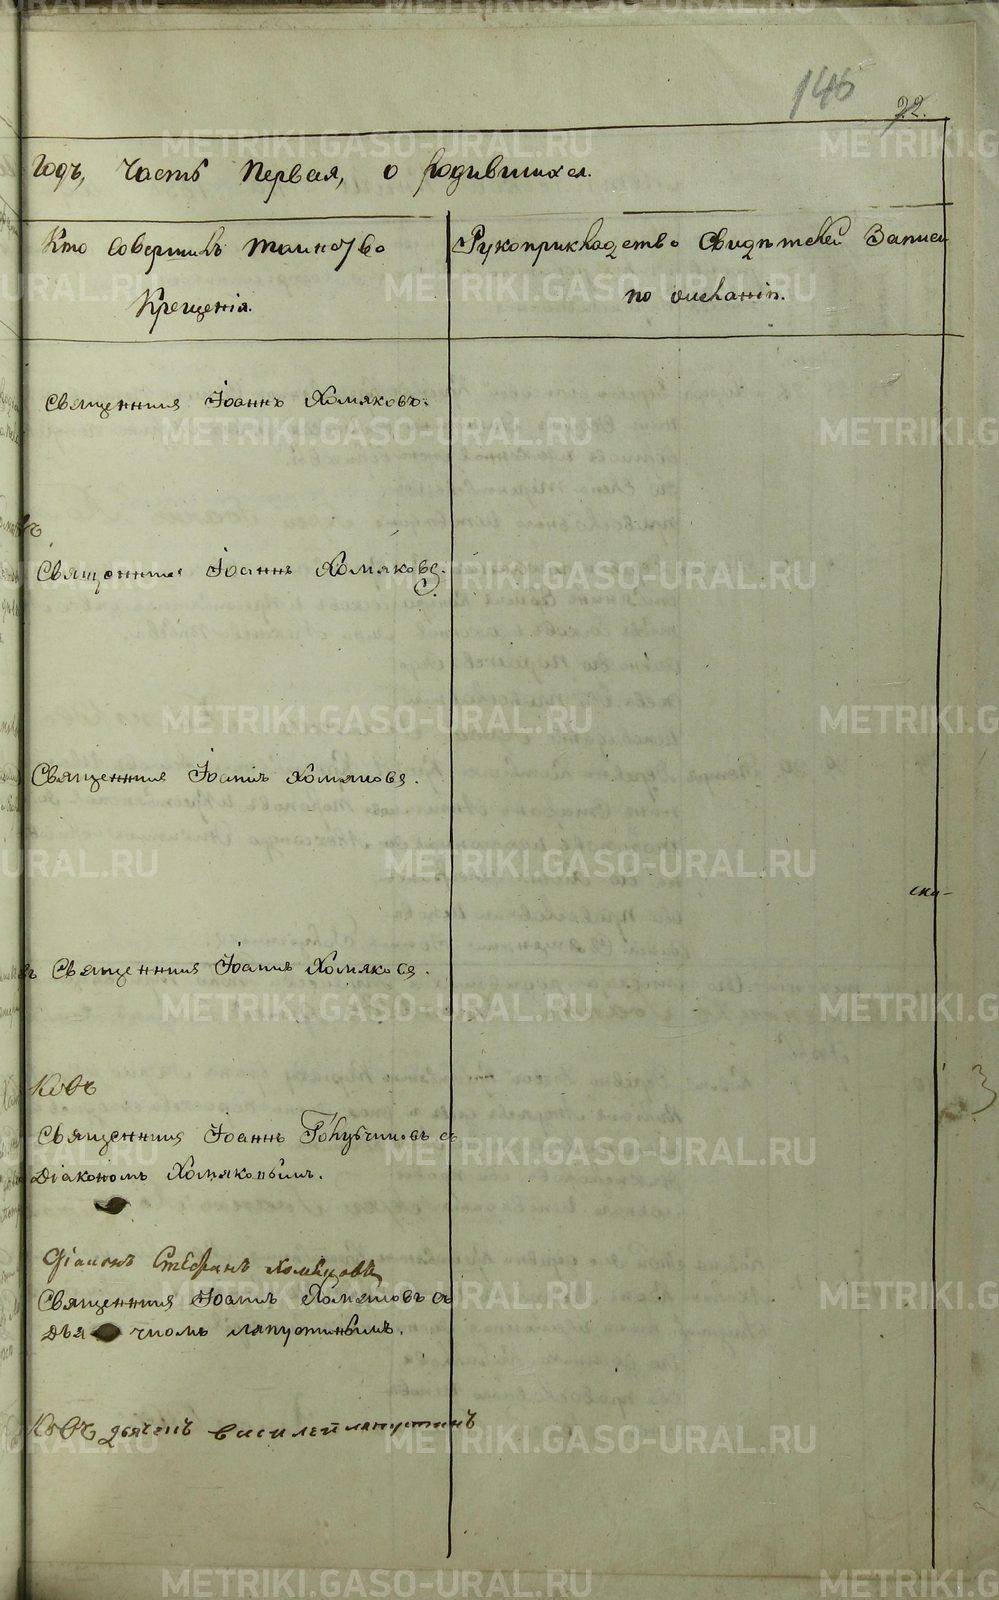 146
22.
Годъ, Часть Первая, о родившихся.
Кто Совершилъ таинство
Крещенія.
Рукоприкладство Свидѣтелей Записи
по желанію.
Священникъ Іоаннъ Хомяковъ.
Священникъ Іоаннъ Хомяковъ.
Священникъ Іоаннъ Хомяковъ.
Священникъ Іоаннъ Хомяковъ.
Священникъ Іоаннъ Голубчиковъ съ
Діакономъ Хомяковымъ.
Діаконъ Стефанъ
Священникъ Іоаннъ Хомяковъ съ
Дьячкомъ Ляпустинымъ.
дьячекъ василей ляпустинъ
METRIKI.GASO-URAL.RU